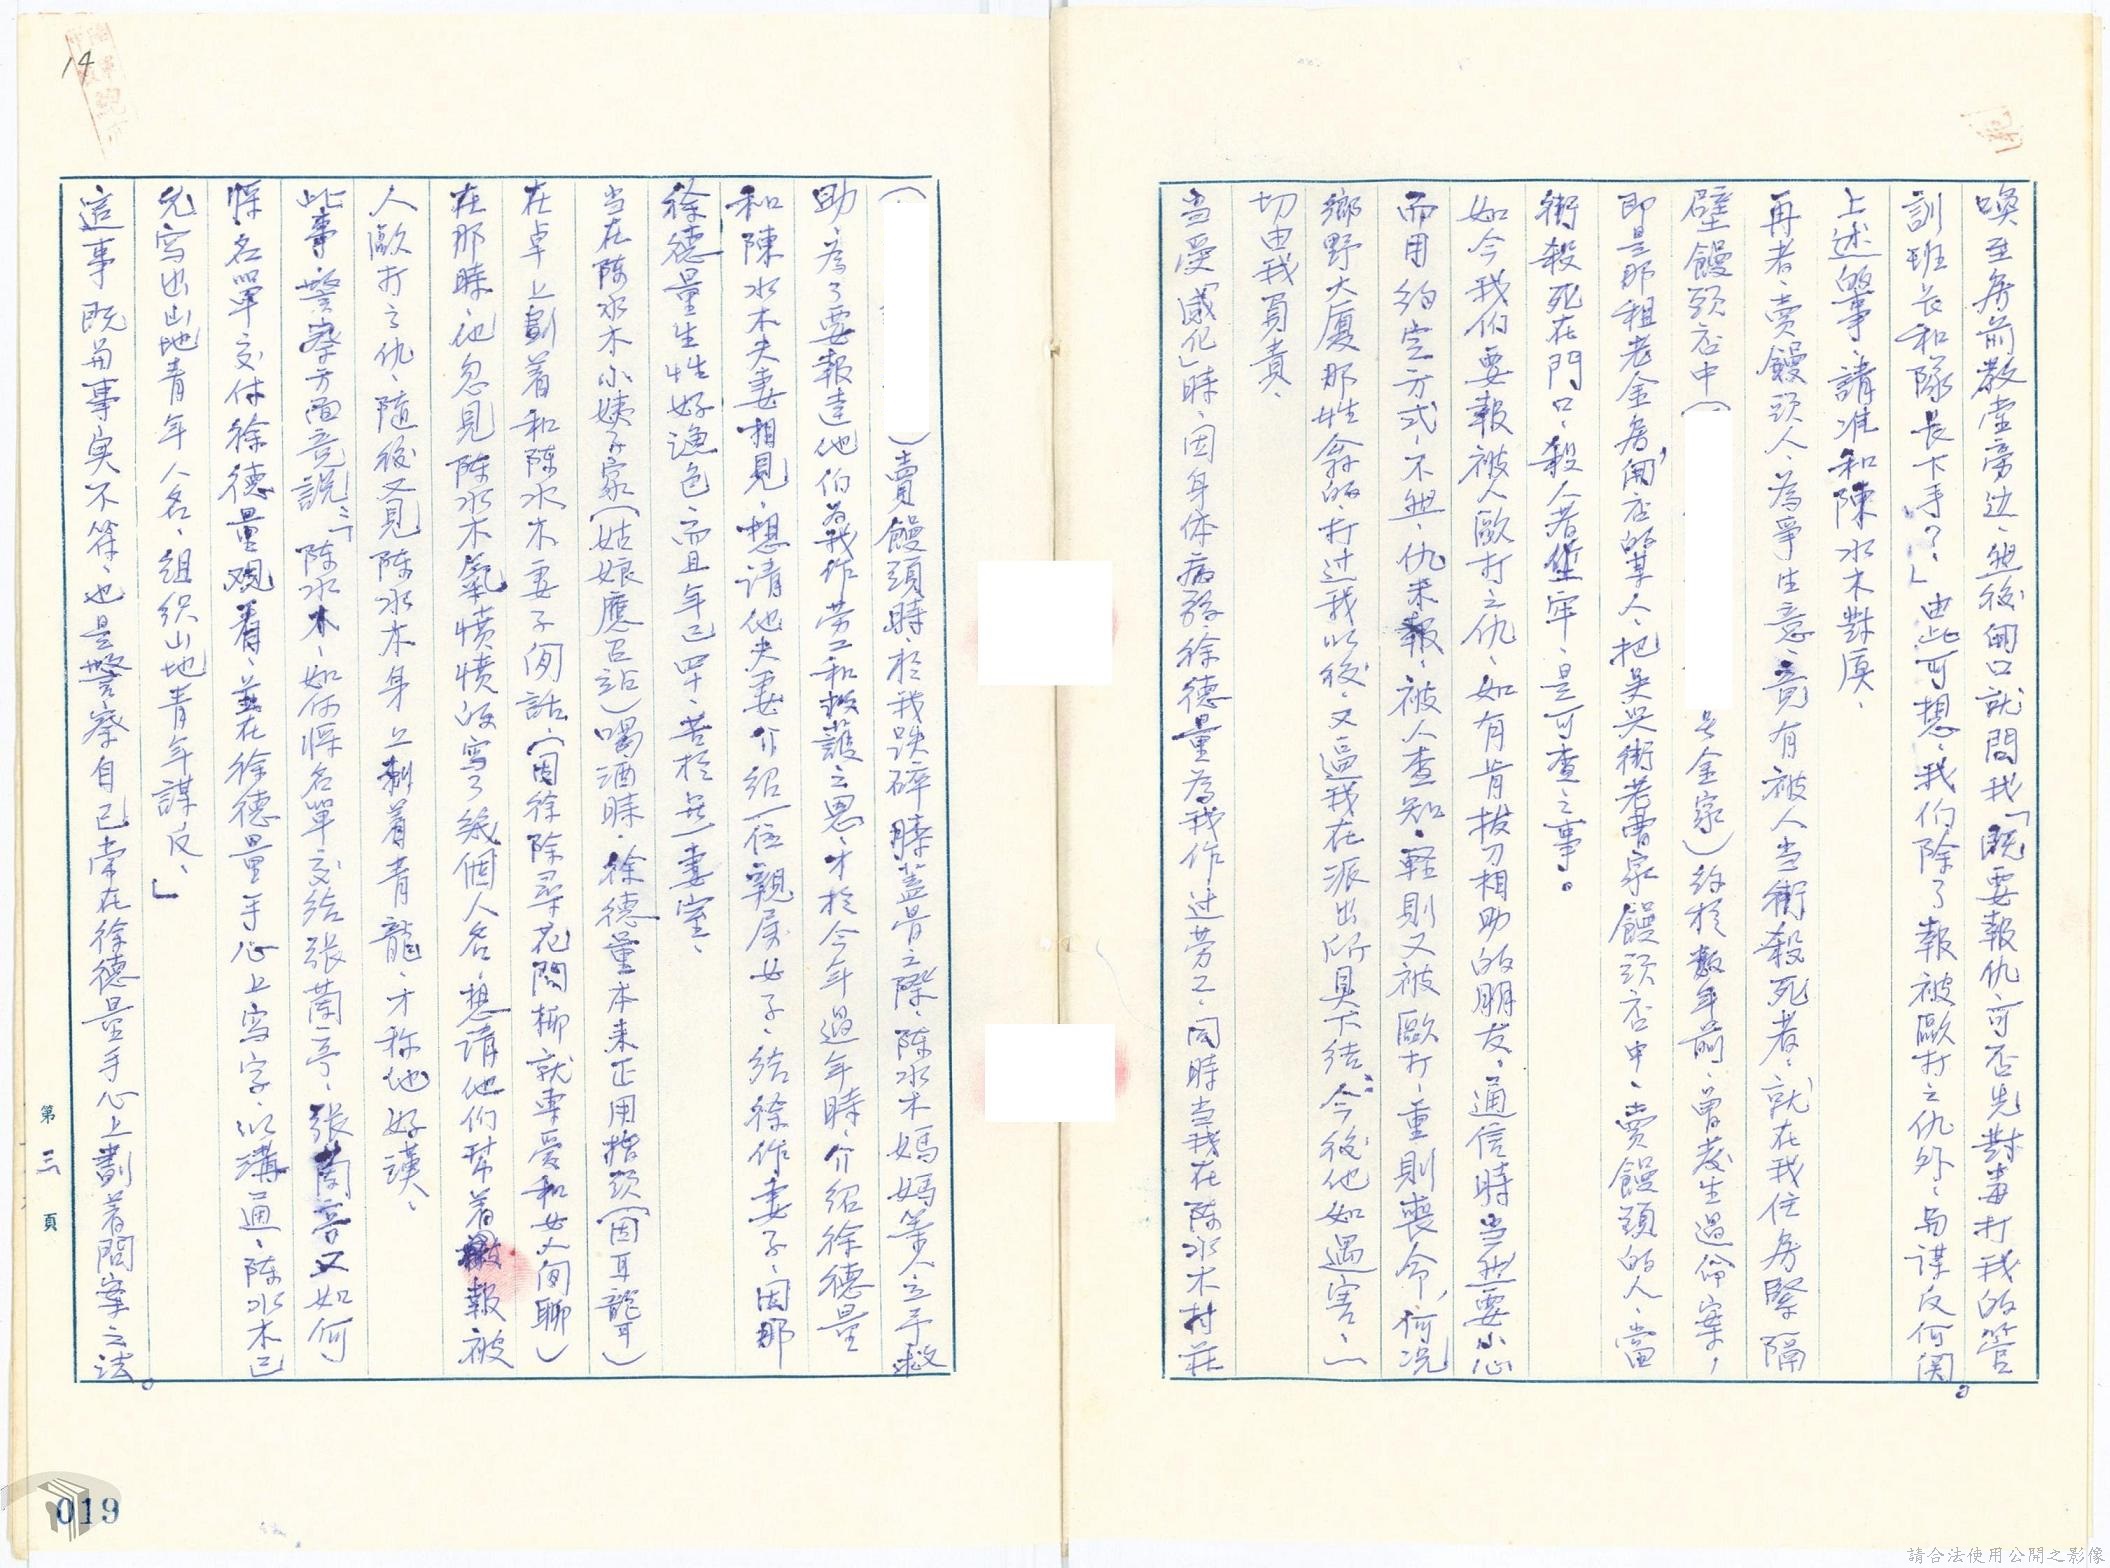 喚至房前教堂旁边、然後開口就問我「既要報仇、可否先對毒打我的管
訓班長和隊長下手？」由此可想、我们除了報被歐打之仇外、與谋反何関。
上述的事、請准和陳水木對质、
再者、卖饅头人、為爭生意、竟有被人当街殺死者、就在我住房緊隔
壁饅头店中（　金家）約於数年前、曾发生過命案，
即是那租老金房開店的某人、把吴哭街老曹家饅头店中、卖饅頭的人、當
街殺死在門口、殺人者坐牢、是可查之事。
如今我们要報被人歐打之仇、如有肯拔刀相助的朋友、通信時当然要小心
而用約定方式、不然、仇未報、被人查知、軽則又被歐打、重則喪命，何况
鄉野大厦那姓翁的、打过我以後、又逼我在派出所具下结：「今後他如遇害、一
切由我負責、
当受「感化」時、因身体病弱徐德量為我作过劳工、同時当我在陈水木村莊
（　）賣饅頭時、於我跌碎膝蓋骨之際、陈水木媽媽等人立予救
助、為了要報達他们為我作劳工和救護之恩、才於今年過年時、介紹徐德量
和陳水木夫妻相見、想請他夫妻介紹一位親房女子、给徐作妻子、因那
徐德量生性好漁色、而且年已四十、苦於無一妻室、
当在陈水木小姨子家（姑娘應召站）喝酒時、徐德量本来正用指头（因耳聾）
在卓上劃着和陈水木妻子问話、（因徐除尋花問柳就專爱和女人闲聊）
在那時、他忽見陈水木氣憤憤的写了幾個人名、想請他们帮着報被
人歐打之仇、隨後又見陈水木身上刺着青龍、才称他好漢、
此事警察方面竟說：「陈水木、如何將名單交给張蘭亭、張蘭亭又如何
將名單交付徐德量观看、並在徐德量手心上写字、以溝通、陈水木已
先写出山地青年人名、組织山地青年謀反、」
這事既與事实不符、也是警察自己常在徐德量手心上劃着問案之法。
第三頁
14
019
請合法使用公開之影像